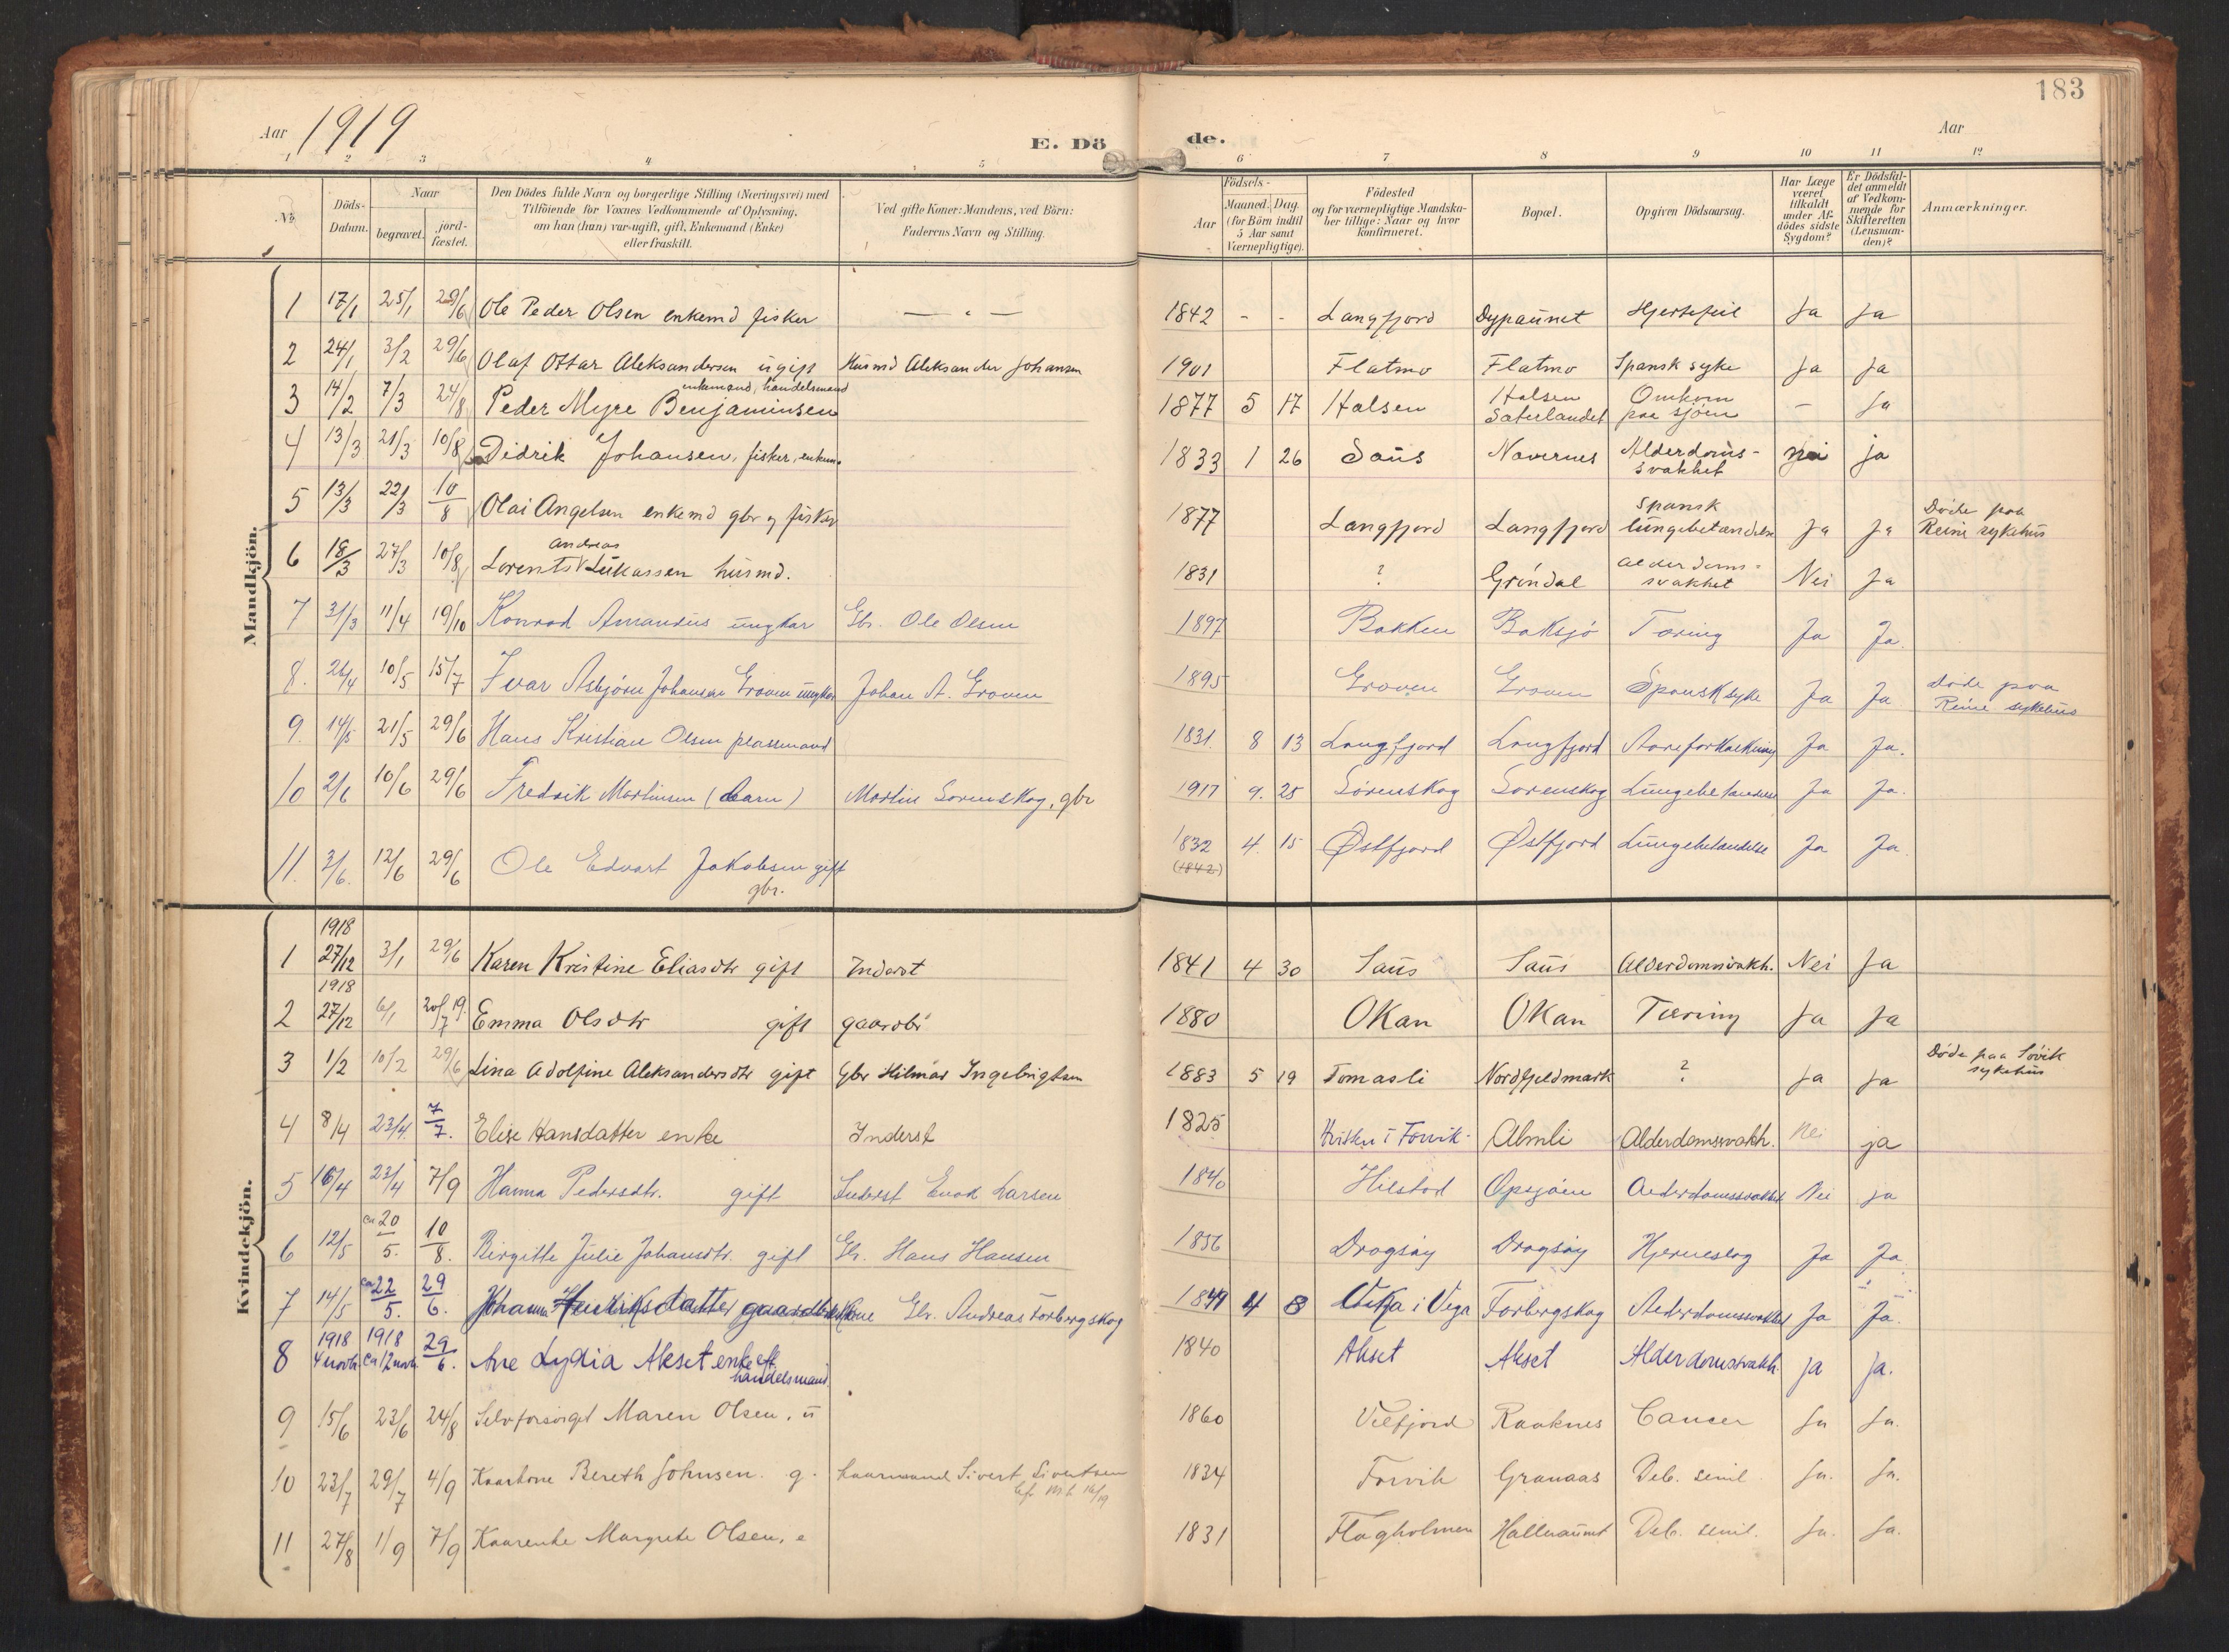 183
Aar 1919
E. Dö de.
Aar
1 2 3 4 5 6 7 8 9 10 11 12
No.
Döds-Datum.
Naar
begravet.
jordfæstet.
Den Dödes fulde Navn og borgerlige Stilling (Næringsvei) med
Tilföiende for Voxnes Vedkommende af Oplysning,
om han (hun) var ugift, gift, Enkemand (Enke)
eller fraskilt.
Ved gifte Koner: Mandens, ved Börn:
Faderens Navn og Stilling.
Födsels-
Aar
Maaned. Dag.
(for Börn indtil
5 Aar samt
Værnepligtige).
Födested
og for værnepligtige Mandska-
ber tillige: Naar og hvor
konfirmeret.
Bopæl.
Opgiven Dödsaarsag.
Har Læge
været
tilkaldt
under Af-
dödes sidste
Sygdom?
Er Dödsfal-
det anmeldt
af Vedkom-
mende for
Skifteretten
(Lensman-
den)?
Anmærkninger.
Mandkjön.
1 17/1 25/1 29/6 Ole Peder Olsen enkemd fisker — " — 1842 - - Langfjord Dypaunet Hjertefeil Ja Ja
2 24/1 3/2 29/6 Olaf Ottar Aleksandersen ugift Husmd Aleksander Johansen 1901 Flatmo Flatmo Spansk syke Ja Ja
enkemand, handelsmand
3 14/2 7/3 24/8 Peder Myre Benjaminsen 1877 5 17 Halsen Halsen Omkom paa sjöen – Ja
4 13/3 21/3 10/8 Didrik Johansen, fisker, enkem. 1833 1 26 Saus Navernes Alderdoms-svakhet nei ja
5 13/3 22/3 10/8 Olai Angelsen enkemd gbr og fisker 1877 Langfjord Langfjord Spansk lungebetændelse Ja Ja Döde paa Reine sykehus
Andreas
6 18/3 27/3 10/8 Lorents Lukassen husmd. 1831 ? Gröndal Alderdoms-svakhet Nei Ja
7 31/3 11/4 19/10 Konrad Amandus ungkar Gbr. Ole Olsen 1897 Bakken Baksjö Tæring Ja Ja.
8. 26/4 10/5 15/7 Ivar Asbjörn Johansen Groven ungkar Johan A. Groven 1895 Groven Groven Spansksyke Ja Ja döde paa Reine sykehus
9. 14/5 21/5 29/6 Hans Kristian Olsen plassmand 1831. 8 13 Langfjord Langfjord Aareforkalkning Ja Ja.
10 2/6 10/6 29/6 Fredrik Martinsen (barn) Martin Sörenskog, gbr 1917 9. 25 Sörenskog Sörenskog Lungebetændelse Ja Ja.
11. 3/6. 12/6 29/6 Ole Edvart Jakobsen gift gbr. 1832 (1842) 4. 15 Østfjord Østfjord Lungebetændelse Ja Ja.
Kvindekjön.
1 1918 27/12 3/1 29/6 Karen Kristine Eliasdtr gift Inderst 1841 4 30 Saus Saus Alderdomssvakh. Nei Ja
2 1918 27/12 6/1 20/7 19. Emma Olsdtr gift gaardbr 1880 Okan Okan Tæring Ja Ja
3 1/2 10/2 29/6 Lina Adolfine Aleksandersdtr gift Gbr Hilmar Ingebrigtsen 1883 5 19 Tomasli Nordfjeldmark ? Ja Ja Döde paa Sövik sykehus
4 8/4 23/4. 7/7. Elise Hansdatter enke Inderst 1825 i Forvik. Almli Alderdomssvakh. Nei ja
5 16/4 23/4 7/9 Hanna Pedersdtr. gift Inderst Enok Larsen 1840 Hilstad Opsjöen Alderdomssvakhet Nei ja
6 12/5 ca 20/5. 10/8. Birgitte Julie Johansdtr. gift Gbr. Hans Hansen 1856 Dragsöy Dragsöy Hjerneslag Ja Ja
7 14/5 ca 22/5. 29/6. Johanna Henriksdatter gaardbr.kone Gbr. Andreas Forbergskog 1849 4 8 i Vega Forbergskog Alderdomssvakhet Ja Ja.
8 1918 4 novbr. 1918 ca 12 novbr. 29/6. Ane Lydia Akset enke eft. handelsmand. 1840 Akset Akset Alderdomssvakh. ja ja.
9 15/6 23/6 24/8 Selvforsörget Maren Olsen, u 1860 Velfjord Raaknes Cancer Ja Ja.
10 23/7 29/7 4/9 Kaarkone Bereth Johnsen. g. kaarmand Sivert Sivertsen 1834 Forvik Granaas Deb. senil Ja. Ja.
11 27/8 1/9 7/9 Kaarenke Margrete Olsen, e 1831 Flagholmen Hallraunet Deb. senil. Ja. Ja.